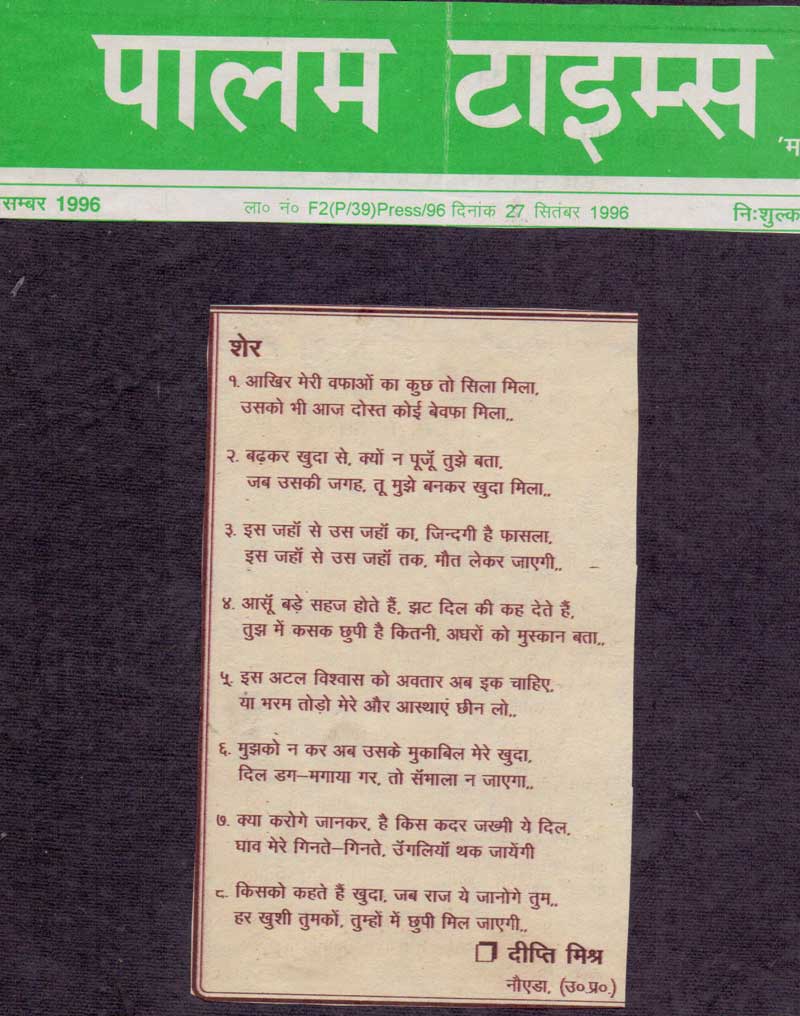 पालम टाइम्स
'म
सम्बर 1996
ला० नं० F2(P/39)Press/96 दिनांक 27 सितंबर 1996
निःशुल्क
शेर
१. आखिर मेरी वफाओं का कुछ तो सिला मिला,
उसको भी आज दोस्त कोई बेवफा मिला,,
२. बढ़कर खुदा से, क्यों न पूजूँ तुझे बता,
जब उसकी जगह, तू मुझे बनकर खुदा मिला,,
३. इस जहाँ से उस जहाँ का, जिन्दगी है फासला,
इस जहाँ से उस जहाँ तक, मौत लेकर जाएगी,,
४. आसूँ बड़े सहज होते हैं, झट दिल की कह देते हैं,
तुझ में कसक छुपी है कितनी, अधरों को मुस्कान बता,,
५. इस अटल विश्वास को अवतार अब इक चाहिए,
या भरम तोड़ो मेरे और आस्थाएं छीन लो,,
६. मुझको न कर अब उसके मुकाबिल मेरे खुदा,
दिल डग–मगाया गर, तो सँभाला न जाएगा,,
७. क्या करोगे जानकर, है किस कदर जख्मी ये दिल,
घाव मेरे गिनते–गिनते, उँगलियाँ थक जायेंगी
८. किसको कहते हैं खुदा, जब राज ये जानोगे तुम,,
हर खुशी तुमकों, तुम्हों में छुपी मिल जाएगी,,
दीप्ति मिश्र
नौएडा, (उ०प्र०)